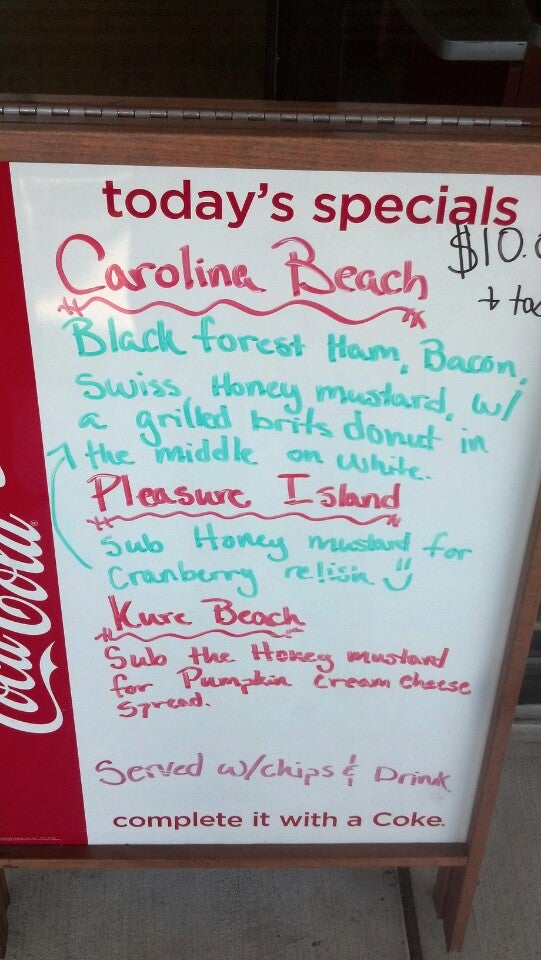 today's specials
Carolina Beach
$10.0
+ tax
Black forest Ham, Bacon,
Swiss, Honey mustard, w/
a grilled brits donut in
the middle on white.
Pleasure Island
Sub Honey mustard for
Cranberry relish
Kure Beach
Sub the Honey mustard
for Pumpkin Cream cheese
Spread.
Served w/chips & Drink
complete it with a Coke.
Coca-Cola